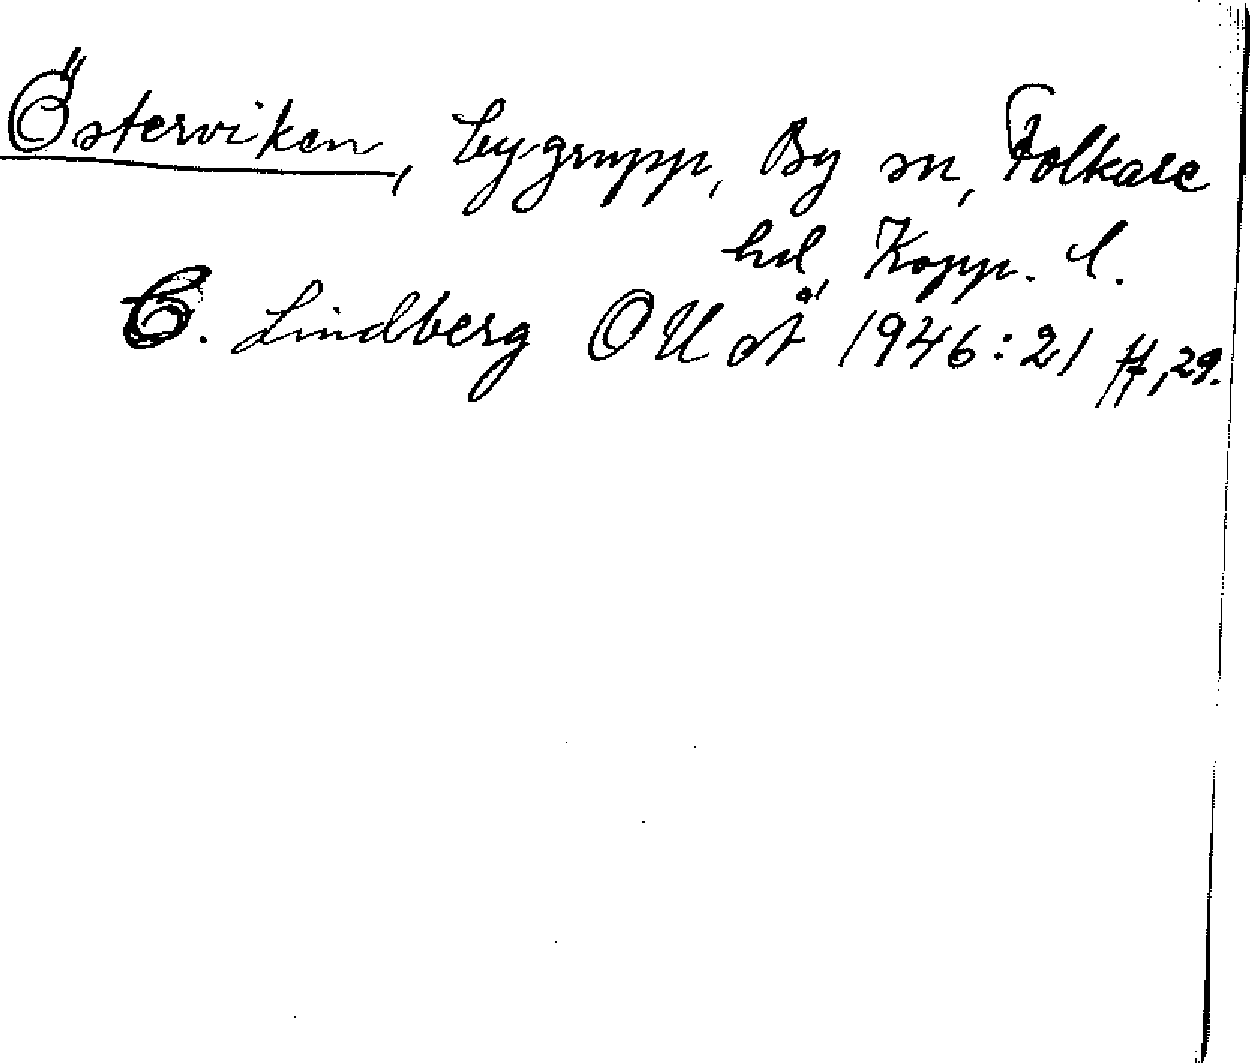 Österviken, bygrupp, By sn, Folkare
hd, Kopp. l.
C. Lindberg OUÅ 1946:21 ff, 29.